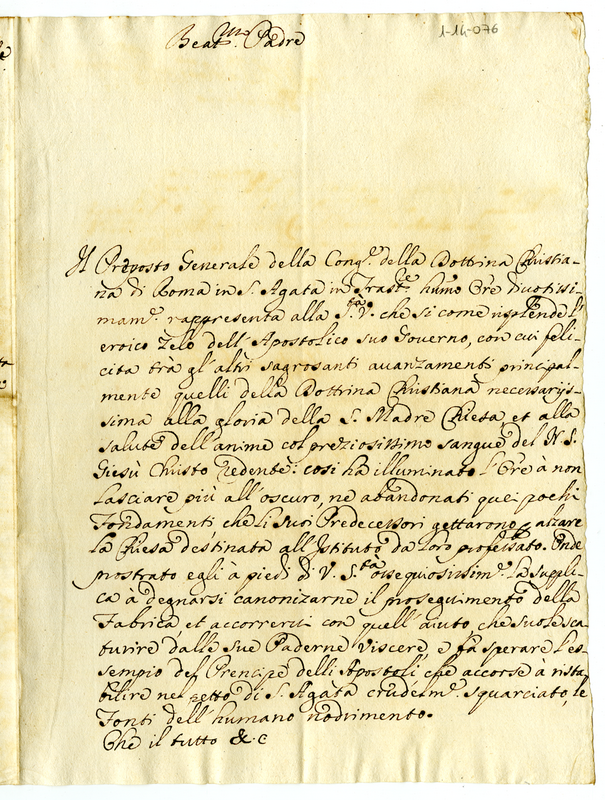 1-14-076
Beat.mo Padre
Il Preposto Generale della Cong.e della Dottrina Christia-
na di Roma in S. Agata in Trast.e humo Ore divotissi-
mam.e rappresenta alla S.tà V.a che si come risplende l'
eroico Zelo dell'Apostolico suo Governo, con cui feli-
cita trà gl'altri sagrosanti avanzamenti principal-
mente quelli della Dottrina Christiana necessarijs-
sima alla gloria della S. Madre Chiesa, et alla
salute dell'anime col preziosissimo sangue del N. S.
Giesù Christo redente: cosi hà illuminato l'Ore à non
lasciare più all'oscuro, ne abandonati quei pochi
fondamenti che li suoi Predecessori gettarono p alzare
la Chiesa destinata all'Istituto da loro professato. Onde
prostrato egli à piedi di V. S.tà ossequiosissim.e la suppli-
ca à degnarsi canonizarne il proseguimento della
Fabrica, et accorrervi con quell'aiuto che suole sca-
turire dalle sue Paderne viscere, e fà sperare l'es-
sempio del Prencipe delli Apostoli che accorse à rista-
bilire nel petto di S. Agata crudelm.e squarciato, le
Fonti dell'humano nodrimento.
Che il tutto &.c